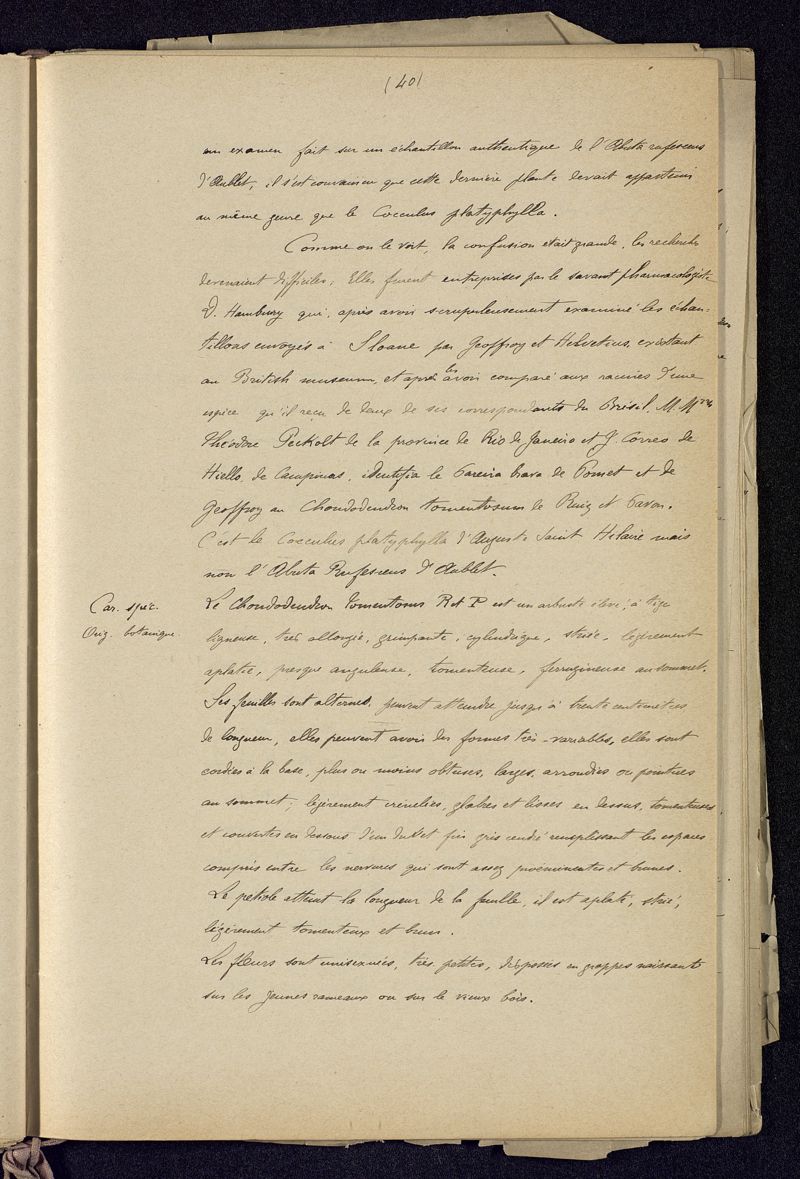 (40)
un examen fait sur un échantillon authentique de l'Abuta rufescens
d'Aublet, il s'est convaincu que cette dernière plante devait appartenir
au même genre que le Cocculus platyphylla.
Comme on le voit, la confusion était grande, les recherches
devenaient difficiles; Elles furent entreprises par le savant pharmacologiste
D. Hambury qui, après avoir scrupuleusement examiné les échan-
tillons envoyés à Sloane par Geoffroy et Helvetius, existant
au British museum, et après les avoir comparé aux racines d'une
espèce qu'il reçu de deux de ses correspondants du Brésil, M. Mrs
Théodore Peckolt de la province de Rio de Janeiro et J. Correo de
Hiello, de Campinas, identifia le Pareira brava de Pomet et de
Geoffroy au Chondodendron tomentosum de Ruiz et Pavon.
C'est le Cocculus platyphylla d'Auguste Saint Hilaire mais
non l'Abuta Rufescens d'Aublet.
Car. spéc.
Orig. botanique.
Le Chondodendron tomentosus R et P est un arbuste élevé, à tige
ligneuse, très allongée, grimpante, cylindrique, striée, légèrement
aplatie, presque anguleuse, tomenteuse, ferrugineuse au sommet.
Ses feuilles sont alternes, peuvent atteindre jusqu'à trente centimètres
de longueur, elles peuvent avoir des formes très-variables, elles sont
cordées à la base, plus ou moins obtuses, larges, arrondies ou pointues
au sommet; légèrement crénelées, glabres et lisses en dessus, tomenteuses
et couvertes en dessous d'un duvet fin gris cendré remplissant les espaces
compris entre les nervures qui sont assez proéminentes et brunes.
Le pétiole atteint la longueur de la feuille, il est aplati, strié,
légèrement tomenteux et brun.
Les fleurs sont unisexuées, très petites, disposées en grappes naissant
sur les jeunes rameaux ou sur le vieux bois.